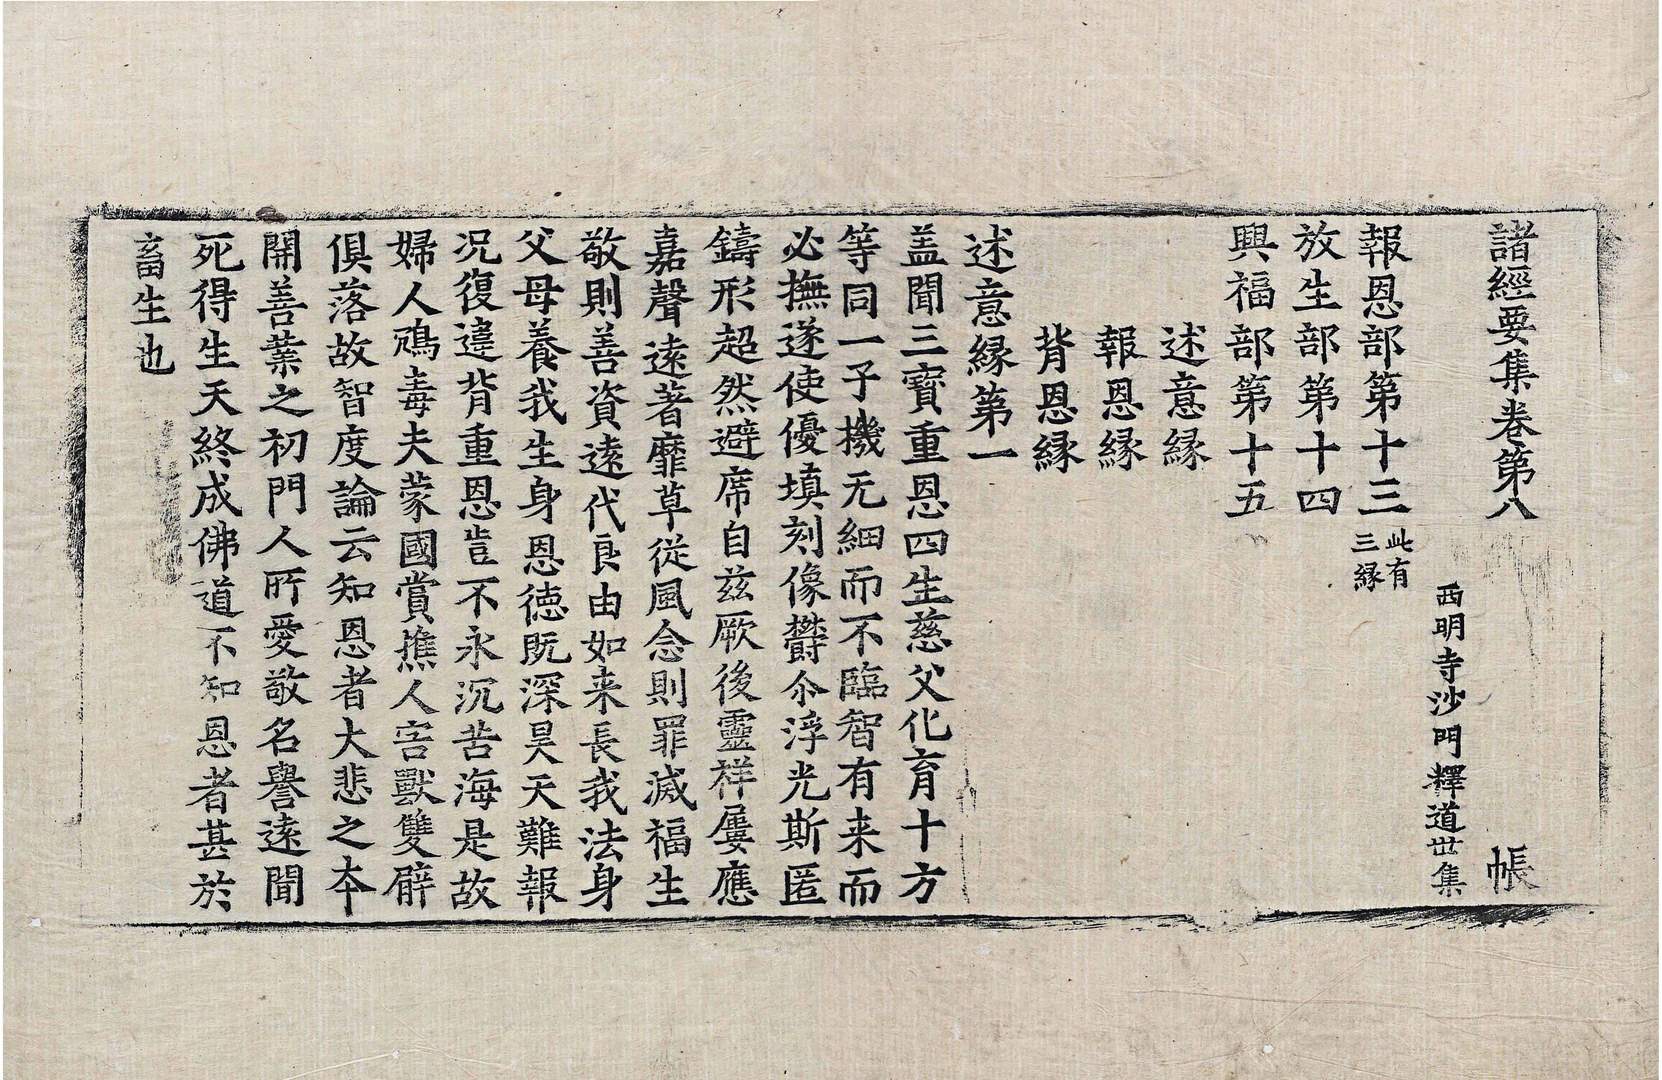 諸經要集卷第八 帳
西明寺沙門釋道世集
報恩部第十三 此有三縁
放生部第十四
興福部第十五
述意縁
報恩縁
背恩縁
述意縁第一
盖聞三寶重恩四生慈父化育十方
等同一子機无細而不臨智有来而
必撫遂使優填刻像欝尒浮光斯匿
鑄形超然避席自兹厥後靈祥屢應
嘉聲遠著靡草從風念則罪滅福生
敬則善資遠代良由如来長我法身
父母養我生身恩德既深昊天難報
況復違背重恩豈不永沉苦海是故
婦人鴆毒夫蒙國賞樵人害獸雙臂
俱落故智度論云知恩者大悲之夲
開善業之初門人所愛敬名譽遠聞
死得生天終成佛道不知恩者甚於
畜生也